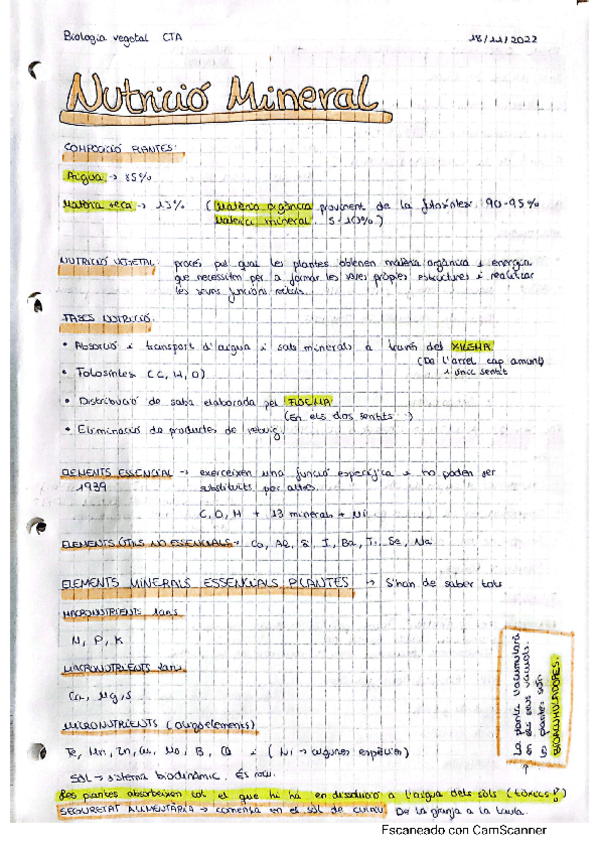 Biologia vegetal CTA 18/11/2022
Nutrició Mineral
COMPOSICIÓ PLANTES:
Aigua → 85%
Matèria seca → 15% (Matèria orgànica provinent de la fotosíntesi. 90-95%
Matèria mineral. 5-10%)
NUTRICIÓ VEGETAL: procés pel qual les plantes obtenen matèria orgànica i energia
que necessiten per a formar les seves pròpies estructures i realitzar
les seves funcions vitals.
FASES NUTRICIÓ:
• Absorció i transport d'aigua i sals minerals a través del XILEMA
(De l'arrel cap amunt)
1 únic sentit
• Fotosíntesi (C, H, O)
• Distribució de saba elaborada pel FLOEMA
(En els dos sentits)
• Eliminació de productes de rebuig.
ELEMENTS ESSENCIAL → exerceixen una funció específica i no poden ser
1939 substituïts per altres.
C, O, H + 13 minerals + Ni
ELEMENTS ÚTILS NO ESSENCIALS → Co, Al, I, Ba, Se, Na
ELEMENTS MINERALS ESSENCIALS PLANTES → S'han de saber tots
MACRONUTRIENTS 1aris
N, P, K
MACRONUTRIENTS
Ca, Mg, S
MICRONUTRIENTS (oligoelements)
Fe, Mn, Zn, Cu, Mo, B, Cl i (Ni → algunes espècies)
SÒL → sistema biodinàmic. És viu.
Les plantes absorbeixen tot el que hi ha en dissolució a l'aigua dels sòls (tòxics!)
SEGURETAT ALIMENTÀRIA → comença en el sòl de cultiu De la granja a la taula.
La planta l'acumularà
en els seus vacúols.
les plantes són
BIOACUMULADORES.
Escaneado con CamScanner